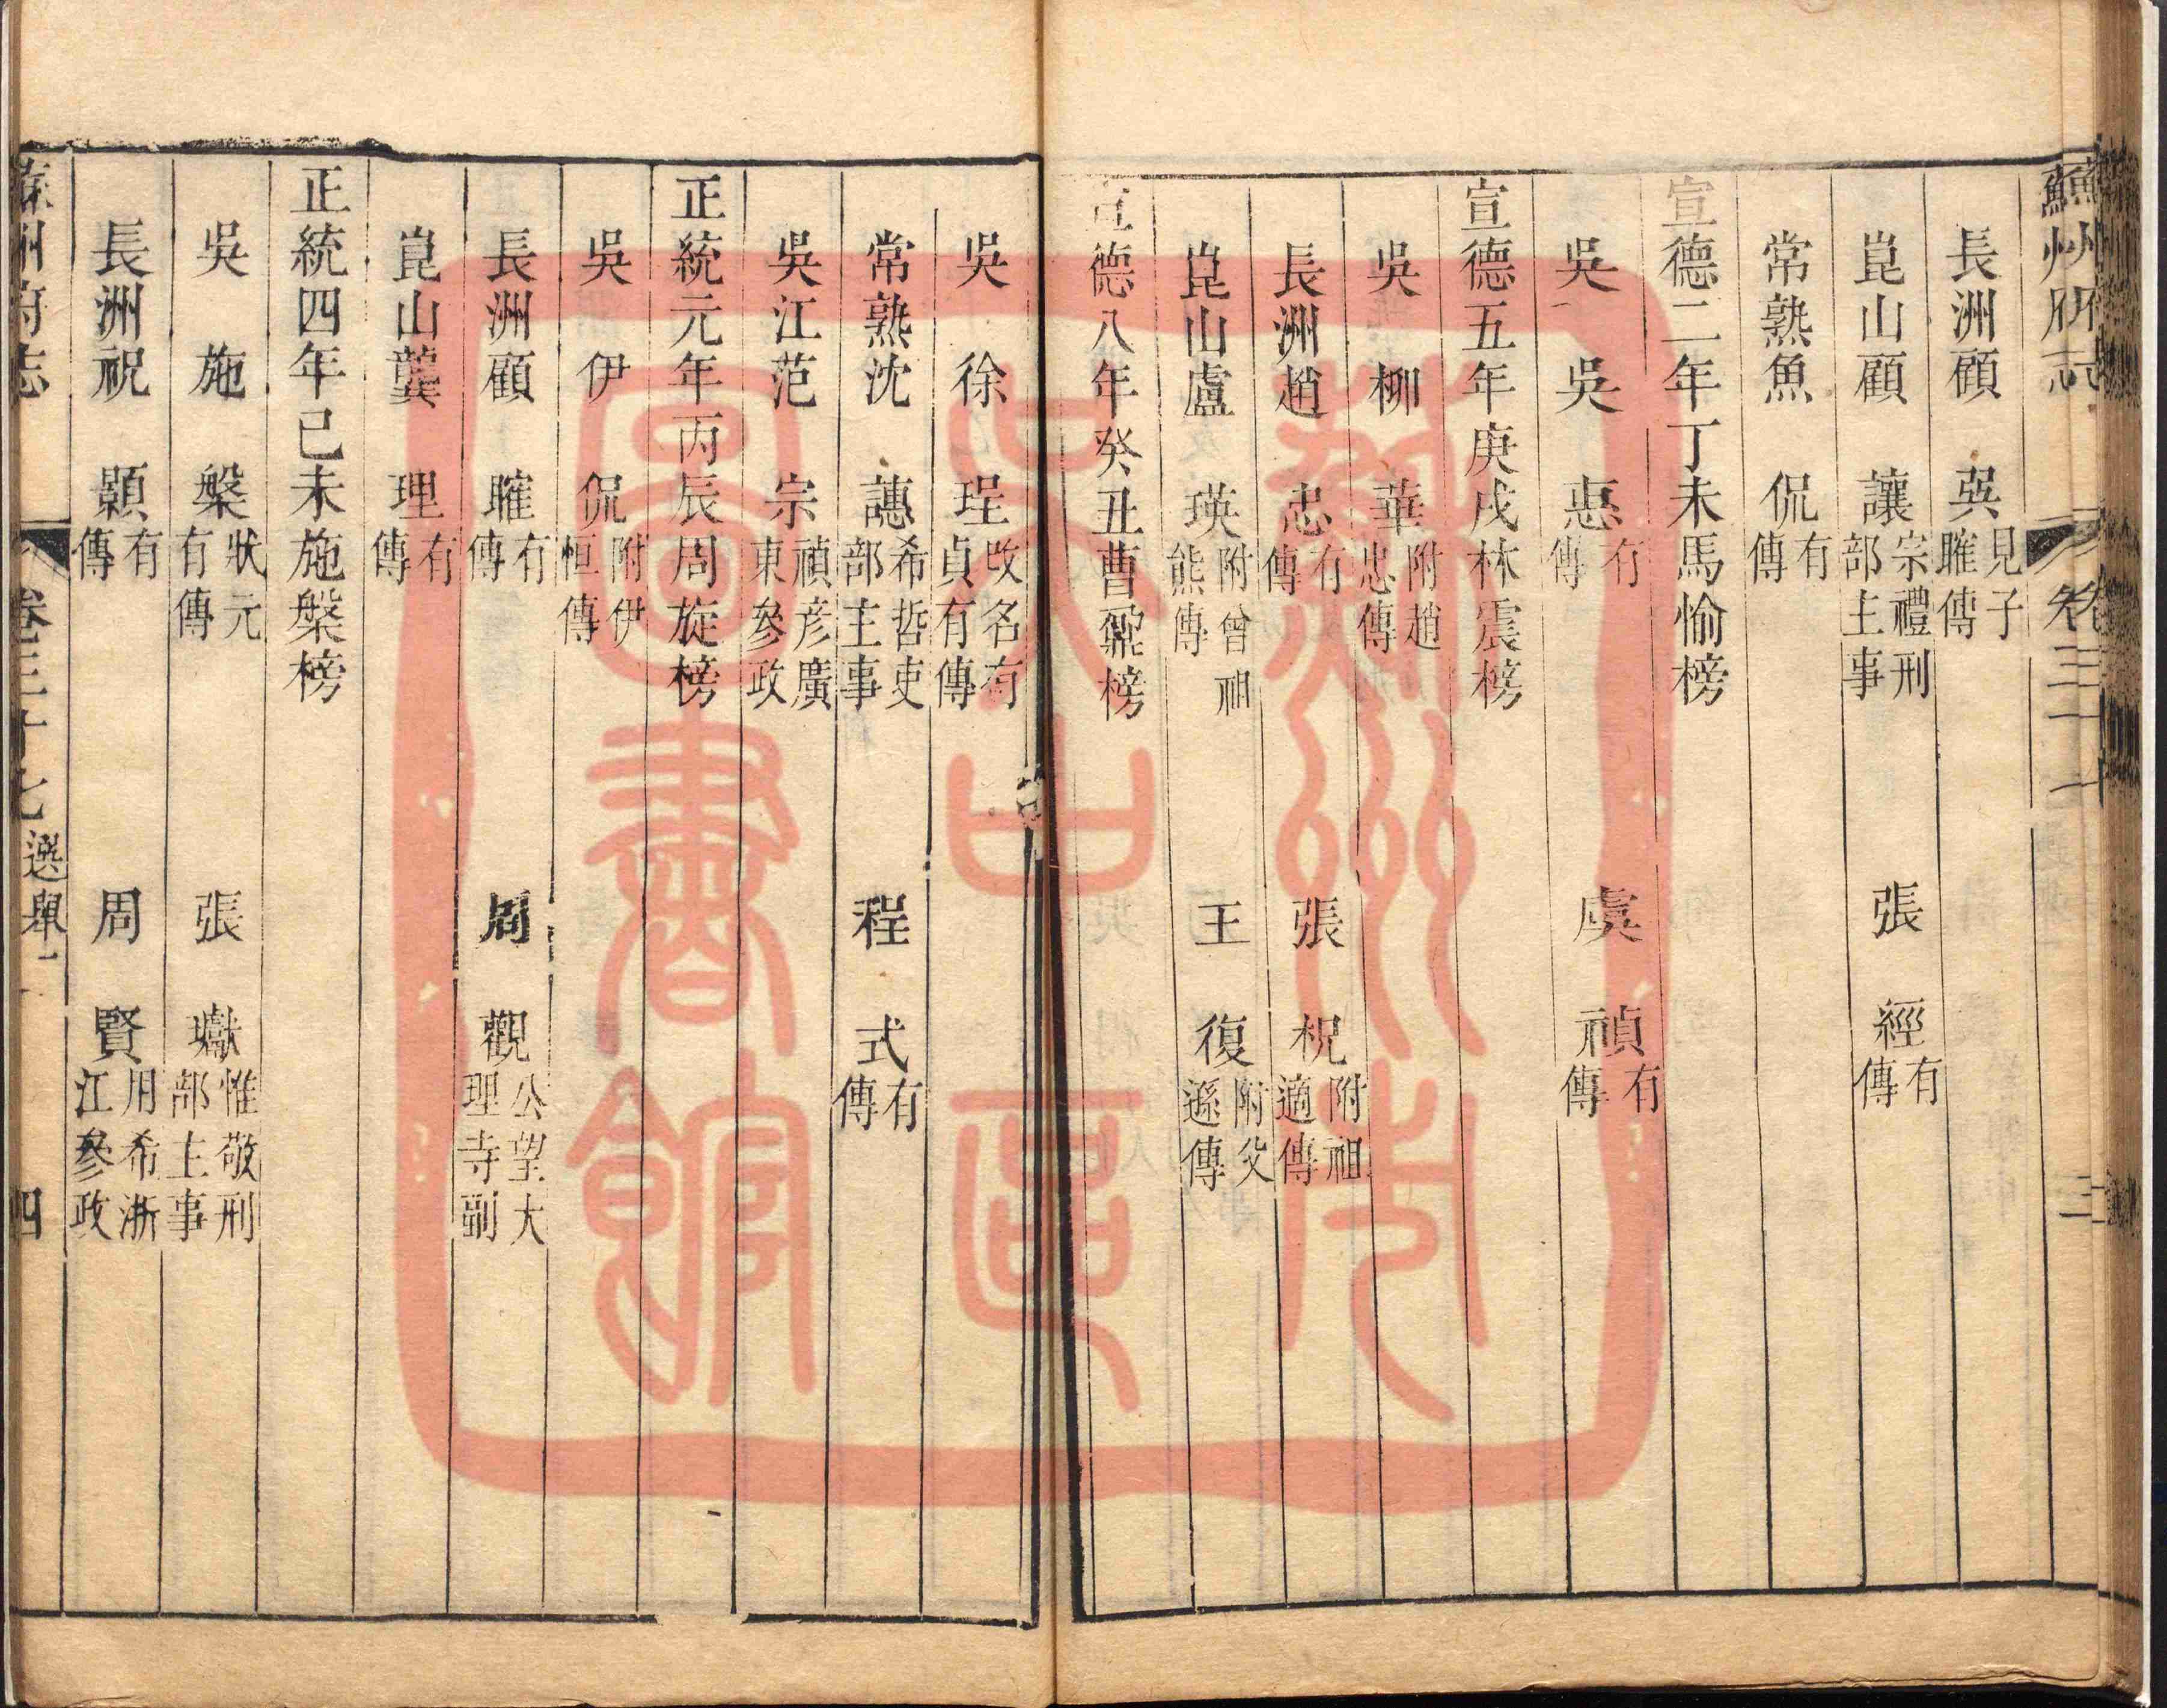 蘇州府志
卷三十七
三
長洲顧　巽見子睢傳
崑山顧　讓宗禮刑部主事　張　經有傳
常熟魚　侃有傳
宣德二年丁未馬愉榜
吳　吳　惪有傳　虞　禎有傳
宣德五年庚戌林震榜
吳　柳　華附趙忠傳
長洲趙　忠有傳　張　柷附祖適傳
崑山盧　瑛附曾祖熊傳　王　復附父遜傳
宣德八年癸丑曹鼐榜
吳　徐　珵改名有貞有傳
常熟沈　譓希哲吏部主事　程　式有傳
吳江范　宗禎彥廣東參政
正統元年丙辰周旋榜
吳　伊　侃附伊恒傳
長洲顧　睢有傳　周　觀公望大理寺副
崑山龔　理有傳
正統四年己未施槃榜
吳　施　槃狀元有傳　張　瓛惟敬刑部主事
長洲祝　顥有傳　周　賢用希浙江參政
蘇州府志
卷三十七　選舉一
四
蘇州市
吳中區
圖書館